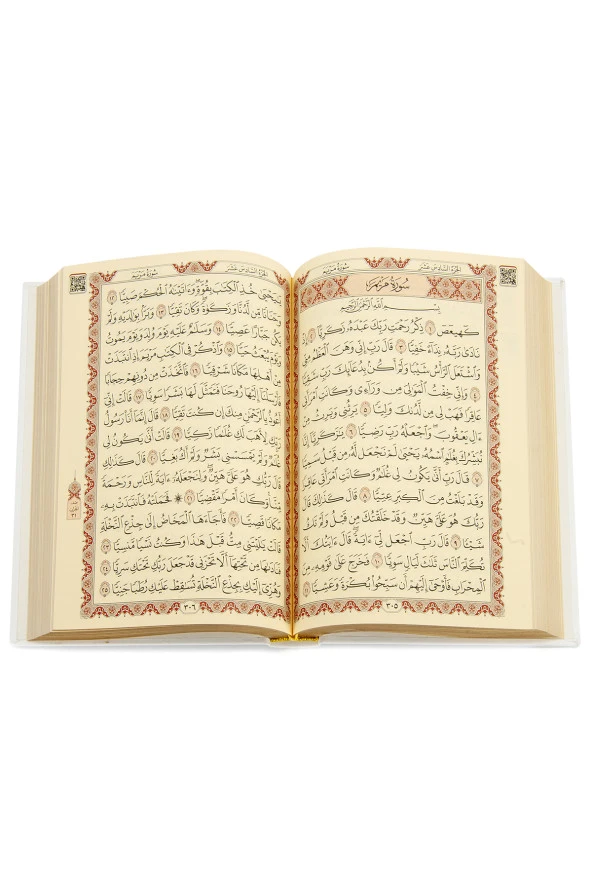 الجزء السادس عشر
سورة مريم
سورة مريم
بسم الله الرحمن الرحيم
كٓهيعٓصٓ ١ ذِكْرُ رَحْمَتِ رَبِّكَ عَبْدَهُۥ زَكَرِيَّآ ٢ إِذْ
نَادَىٰ رَبَّهُۥ نِدَآءً خَفِيًّا ٣ قَالَ رَبِّ إِنِّى وَهَنَ ٱلْعَظْمُ مِنِّى
وَٱشْتَعَلَ ٱلرَّأْسُ شَيْبًا وَلَمْ أَكُنۢ بِدُعَآئِكَ رَبِّ شَقِيًّا
٤ وَإِنِّى خِفْتُ ٱلْمَوَٰلِىَ مِن وَرَآءِى وَكَانَتِ ٱمْرَأَتِى
عَاقِرًا فَهَبْ لِى مِن لَّدُنكَ وَلِيًّا ٥ يَرِثُنِى وَيَرِثُ مِنْ
ءَالِ يَعْقُوبَ وَٱجْعَلْهُ رَبِّ رَضِيًّا ٦ يَٰزَكَرِيَّآ إِنَّا
نُبَشِّرُكَ بِغُلَٰمٍ ٱسْمُهُۥ يَحْيَىٰ لَمْ نَجْعَل لَّهُۥ مِن قَبْلُ سَمِيًّا
٧ قَالَ رَبِّ أَنَّىٰ يَكُونُ لِى غُلَٰمٌ وَكَانَتِ ٱمْرَأَتِى عَاقِرًا
وَقَدْ بَلَغْتُ مِنَ ٱلْكِبَرِ عِتِيًّا ٨ قَالَ كَذَٰلِكَ قَالَ
رَبُّكَ هُوَ عَلَىَّ هَيِّنٌ وَقَدْ خَلَقْتُكَ مِن قَبْلُ وَلَمْ تَكُ
شَيْـًٔا ٩ قَالَ رَبِّ ٱجْعَل لِّىٓ ءَايَةً قَالَ ءَايَتُكَ أَلَّا
تُكَلِّمَ ٱلنَّاسَ ثَلَٰثَ لَيَالٍ سَوِيًّا ١٠ فَخَرَجَ عَلَىٰ قَوْمِهِۦ مِنَ
ٱلْمِحْرَابِ فَأَوْحَىٰٓ إِلَيْهِمْ أَن سَبِّحُوا۟ بُكْرَةً وَعَشِيًّا ١١
٣٠٥
الجزء السادس عشر
سورة مريم
يَٰيَحْيَىٰ خُذِ ٱلْكِتَٰبَ بِقُوَّةٍ وَءَاتَيْنَٰهُ ٱلْحُكْمَ صَبِيًّا ١٢
وَحَنَانًا مِّن لَّدُنَّا وَزَكَوٰةً وَكَانَ تَقِيًّا ١٣ وَبَرًّۢا بِوَٰلِدَيْهِ وَلَمْ
يَكُن جَبَّارًا عَصِيًّا ١٤ وَسَلَٰمٌ عَلَيْهِ يَوْمَ وُلِدَ وَيَوْمَ يَمُوتُ
وَيَوْمَ يُبْعَثُ حَيًّا ١٥ وَٱذْكُرْ فِى ٱلْكِتَٰبِ مَرْيَمَ إِذِ ٱنتَبَذَتْ
مِنْ أَهْلِهَا مَكَانًا شَرْقِيًّا ١٦ فَٱتَّخَذَتْ مِن دُونِهِمْ حِجَابًا
فَأَرْسَلْنَآ إِلَيْهَا رُوحَنَا فَتَمَثَّلَ لَهَا بَشَرًا سَوِيًّا ١٧ قَالَتْ إِنِّىٓ
أَعُوذُ بِٱلرَّحْمَٰنِ مِنكَ إِن كُنتَ تَقِيًّا ١٨ قَالَ إِنَّمَآ أَنَا۠ رَسُولُ
رَبِّكِ لِأَهَبَ لَكِ غُلَٰمًا زَكِيًّا ١٩ قَالَتْ أَنَّىٰ يَكُونُ لِى
غُلَٰمٌ وَلَمْ يَمْسَسْنِى بَشَرٌ وَلَمْ أَكُ بَغِيًّا ٢٠ قَالَ كَذَٰلِكِ قَالَ
رَبُّكِ هُوَ عَلَىَّ هَيِّنٌ وَلِنَجْعَلَهُۥٓ ءَايَةً لِّلنَّاسِ وَرَحْمَةً
مِّنَّا وَكَانَ أَمْرًا مَّقْضِيًّا ٢١ ۞ فَحَمَلَتْهُ فَٱنتَبَذَتْ بِهِۦ
مَكَانًا قَصِيًّا ٢٢ فَأَجَآءَهَا ٱلْمَخَاضُ إِلَىٰ جِذْعِ ٱلنَّخْلَةِ
قَالَتْ يَٰلَيْتَنِى مِتُّ قَبْلَ هَٰذَا وَكُنتُ نَسْيًا مَّنسِيًّا ٢٣
فَنَادَىٰهَا مِن تَحْتِهَآ أَلَّا تَحْزَنِى قَدْ جَعَلَ رَبُّكِ تَحْتَكِ سَرِيًّا ٢٤
وَهُزِّىٓ إِلَيْكِ بِجِذْعِ ٱلنَّخْلَةِ تُسَٰقِطْ عَلَيْكِ رُطَبًا جَنِيًّا ٢٥
٣٠٦